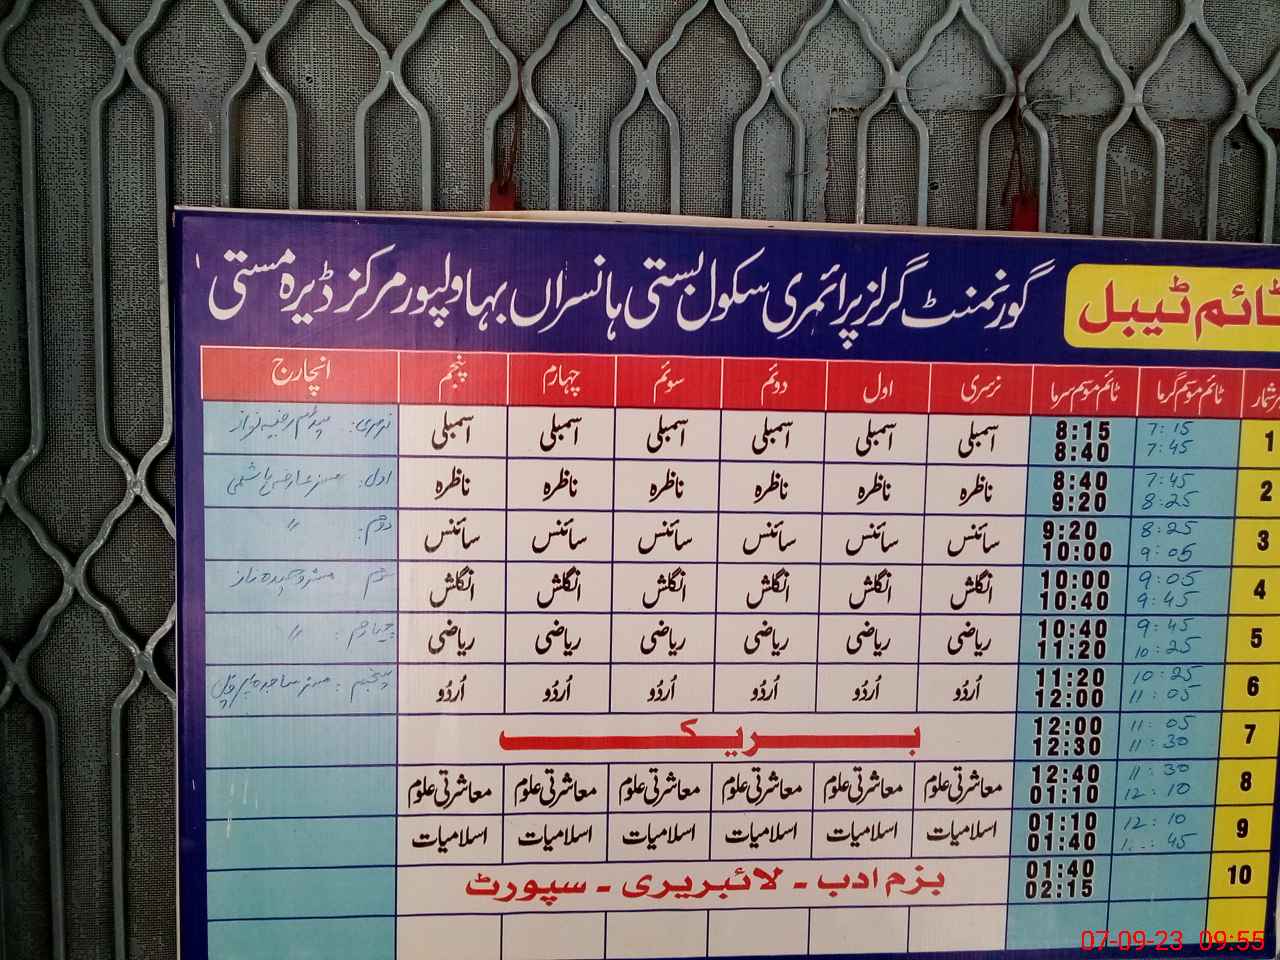 ٹائم ٹیبل
گورنمنٹ گرلز پرائمری سکول بستی ہانسراں بہاولپور مرکز ڈیرہ مستی
ٹائم موسم گرما ٹائم موسم سرما نرسری اول دوئم سوئم چہارم پنجم انچارج
1 7:15 7:45 8:15 8:40 اسمبلی اسمبلی اسمبلی اسمبلی اسمبلی اسمبلی نرسری:
2 7:45 8:25 8:40 9:20 ناظرہ ناظرہ ناظرہ ناظرہ ناظرہ ناظرہ اول: مسز
3 8:25 9:05 9:20 10:00 سائنس سائنس سائنس سائنس سائنس سائنس دوم: "
4 9:05 9:45 10:00 10:40 انگلش انگلش انگلش انگلش انگلش انگلش سوم
5 9:45 10:25 10:40 11:20 ریاضی ریاضی ریاضی ریاضی ریاضی ریاضی چہارم: "
6 10:25 11:05 11:20 12:00 اُردُو اُردُو اُردُو اُردُو اُردُو اُردُو پنجم: مسز ساجدہ
7 11:05 11:30 12:00 12:30 بریک
8 11:30 12:10 12:40 01:10 معاشرتی علوم معاشرتی علوم معاشرتی علوم معاشرتی علوم معاشرتی علوم معاشرتی علوم
9 12:10 01:10 01:40 اسلامیات اسلامیات اسلامیات اسلامیات اسلامیات اسلامیات
10 01:40 02:15 بزم ادب - لائبریری - سپورٹ
07-09-23 09:55